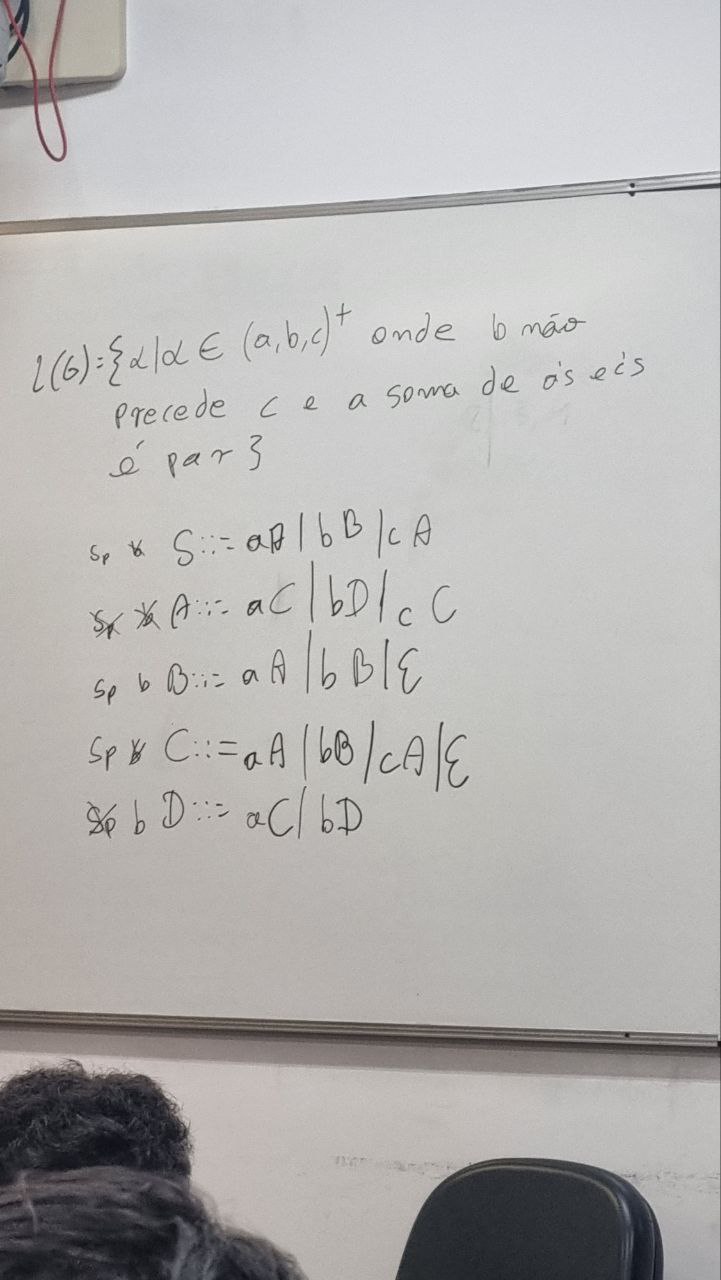 L(G)={α|α ∈ (a,b,c)⁺ onde b não
precede c e a soma de a's e c's
é par}
Sp b S::= aA | bB | cA
Sp b A::= aC | bD | cC
Sp b B::= aA | bB | ε
Sp b C::= aA | bB | cA | ε
Sp b D::= aC | bD